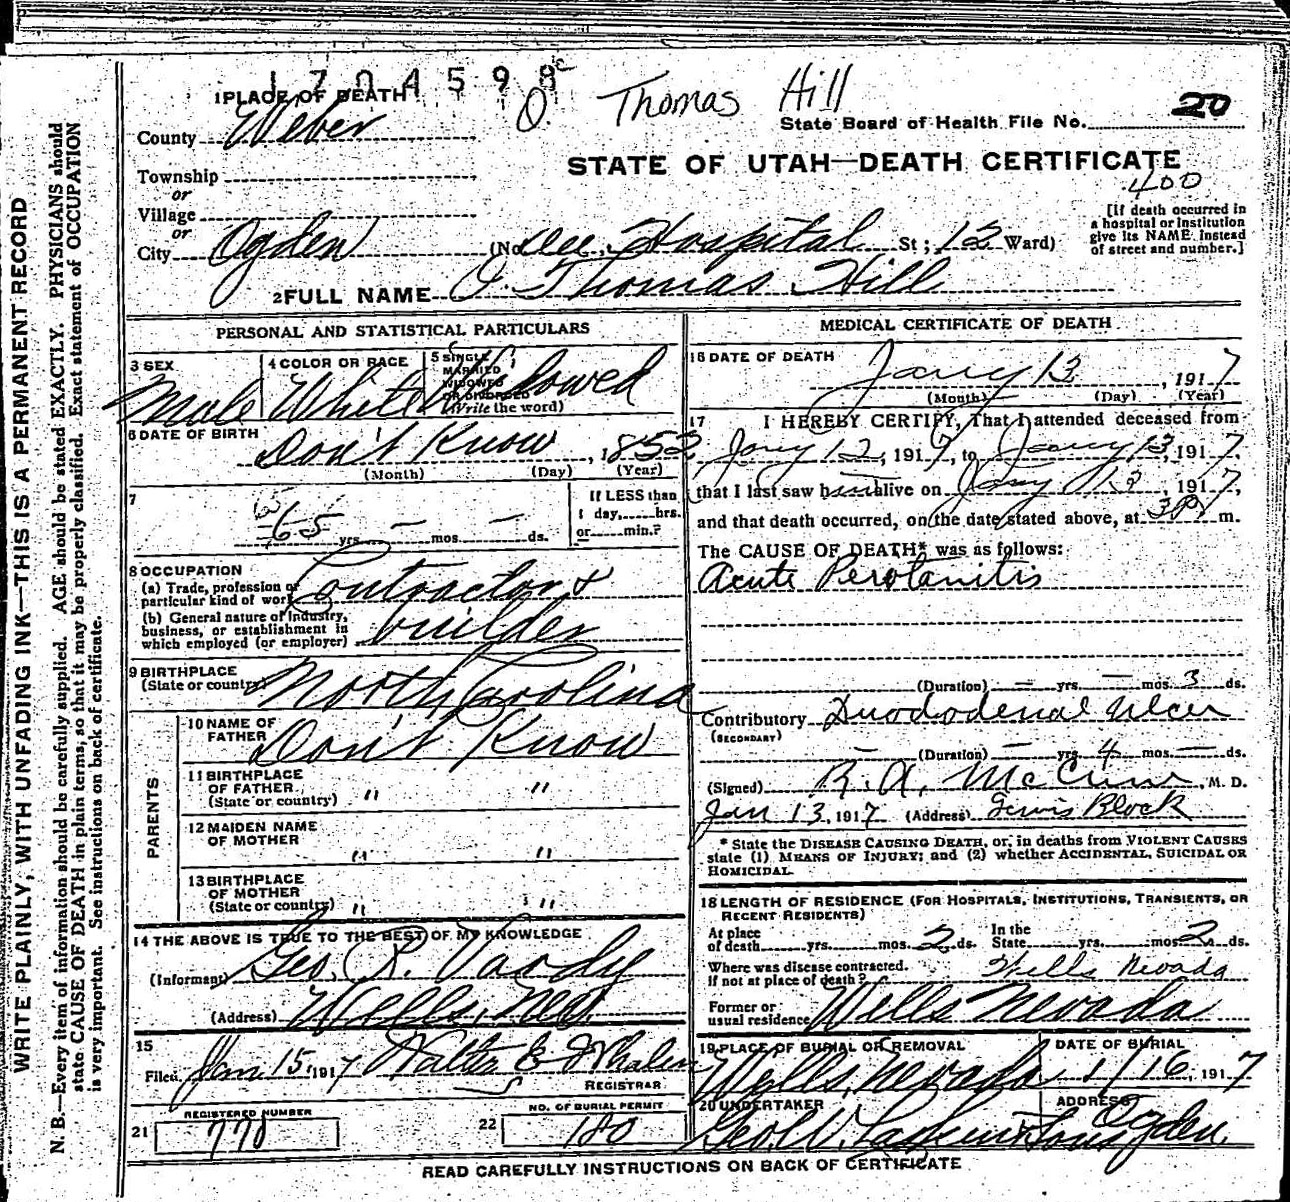 1704598
O. Thomas Hill
1 PLACE OF DEATH
State Board of Health File No. 20
County Weber
STATE OF UTAH—DEATH CERTIFICATE
400
Township
or
Village
or
City Ogden (No. Dee Hospital St; 13 Ward)
[If death occurred in
a hospital or institution
give its NAME instead
of street and number.]
2 FULL NAME O. Thomas Hill
PERSONAL AND STATISTICAL PARTICULARS
3 SEX Male
4 COLOR OR RACE White
5 SINGLE
MARRIED
WIDOWED
OR DIVORCED
(Write the word)
Widowed
6 DATE OF BIRTH Don't Know, 1852
(Month) (Day) (Year)
7
65 yrs. — mos. — ds.
If LESS than
1 day,......hrs.
or......min.?
8 OCCUPATION
(a) Trade, profession or
particular kind of work Contractor &
(b) General nature of industry,
business, or establishment in
which employed (or employer) builder
9 BIRTHPLACE
(State or country) North Carolina
PARENTS
10 NAME OF
FATHER Don't Know
11 BIRTHPLACE
OF FATHER
(State or country) " "
12 MAIDEN NAME
OF MOTHER " "
13 BIRTHPLACE
OF MOTHER
(State or country) " "
14 THE ABOVE IS TRUE TO THE BEST OF MY KNOWLEDGE
(Informant) Geo. R. Vardy
(Address) Wells, Nev.
15
Filed Jan. 15, 1917 Walter E. Whalen
REGISTRAR
REGISTERED NUMBER
21 770
NO. OF BURIAL PERMIT
22 180
MEDICAL CERTIFICATE OF DEATH
16 DATE OF DEATH
Jany 13, 1917
(Month) (Day) (Year)
17 I HEREBY CERTIFY, That I attended deceased from
Jany 12, 1917, to Jany 13, 1917,
that I last saw him alive on Jany 13, 1917,
and that death occurred, on the date stated above, at 3 P m.
The CAUSE OF DEATH* was as follows:
Acute Perotanitis
(Duration) — yrs. — mos. 3 ds.
Contributory Duododenal Ulcer
(SECONDARY)
— (Duration) — yrs. 4 mos. — ds.
(Signed) R. A. McCune, M. D.
Jan 13, 1917 (Address) Lewis Block
* State the DISEASE CAUSING DEATH, or, in deaths from VIOLENT CAUSES
state (1) MEANS OF INJURY; and (2) whether ACCIDENTAL, SUICIDAL OR
HOMICIDAL.
18 LENGTH OF RESIDENCE (FOR HOSPITALS, INSTITUTIONS, TRANSIENTS, OR
RECENT RESIDENTS)
At place
of death......yrs.......mos. 2 ds.
In the
State......yrs.......mos. 2 ds.
Where was disease contracted.
if not at place of death? Wells Nevada
Former or
usual residence Wells Nevada
19 PLACE OF BURIAL OR REMOVAL
Wells, Nevada
DATE OF BURIAL
1/16, 1917
20 UNDERTAKER
Geo. W. Larkin & Sons
ADDRESS
Ogden.
READ CAREFULLY INSTRUCTIONS ON BACK OF CERTIFICATE
WRITE PLAINLY, WITH UNFADING INK—THIS IS A PERMANENT RECORD
N. B.—Every item of information should be carefully supplied. AGE should be stated EXACTLY. PHYSICIANS should
state CAUSE OF DEATH in plain terms, so that it may be properly classified. Exact statement of OCCUPATION
is very important. See instructions on back of certificate.